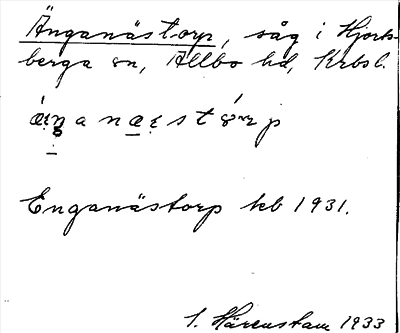 Änganästorp, såg i Hjorts-
berga sn, Allbo hd, Krbsl.
Enganästorp kb 1931.
S. Härenstam 1933